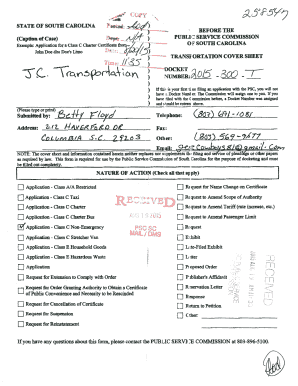 258547
COPY
STATE OF SOUTH CAROLINA
(Caption of Case)
Example: Application for a Class C Charter Certificate from
John Doe dba Doe's Limo
J.C. Transportation
Time: 1135
BEFORE THE
PUBLIC SERVICE COMMISSION
OF SOUTH CAROLINA
TRANSPORTATION COVER SHEET
DOCKET
NUMBER: 2015 - 300 - T
If this is your first time filing an application with the PSC, you will not
have a Docket Number. The Commission will assign one to you. If you
have filed with the Commission before, a Docket Number was assigned
and should be entered above.
(Please type or print)
Submitted by: Betty Floyd
Address: 212 HAVERFORD DR
COLUMBIA S.C. 29203
Telephone: (803) 691-1081
Fax:
Other: (803) 569-9677
Email:
NOTE: The cover sheet and information contained herein neither replaces nor supplements the filing and service of pleadings or other papers
as required by law. This form is required for use by the Public Service Commission of South Carolina for the purpose of docketing and must
be filled out completely.
NATURE OF ACTION (Check all that apply)
Application - Class A/A Restricted
Application - Class C Taxi
Application - Class C Charter
Application - Class C Charter Bus
Application - Class C Non-Emergency
Application - Class C Stretcher Van
Application - Class E Household Goods
Application - Class E Hazardous Waste
Application
Request for Extension to Comply with Order
Request for Order Granting Authority to Obtain a Certificate
of Public Convenience and Necessity to be Rescinded
Request for Cancellation of Certificate
Request for Suspension
Request for Reinstatement
Request for Name Change on Certificate
Request to Amend Scope of Authority
Request to Amend Tariff (rate increase, etc.)
Request to Amend Passenger Limit
Request
Exhibit
Late-Filed Exhibit
Letter
Proposed Order
Publisher's Affidavit
Reservation Letter
Response
Return to Petition
Other
RECEIVED
PSC SC
MAIL / DMS
RECEIVED
If you have any questions about this form, please contact the PUBLIC SERVICE COMMISSION at 803-896-5100.